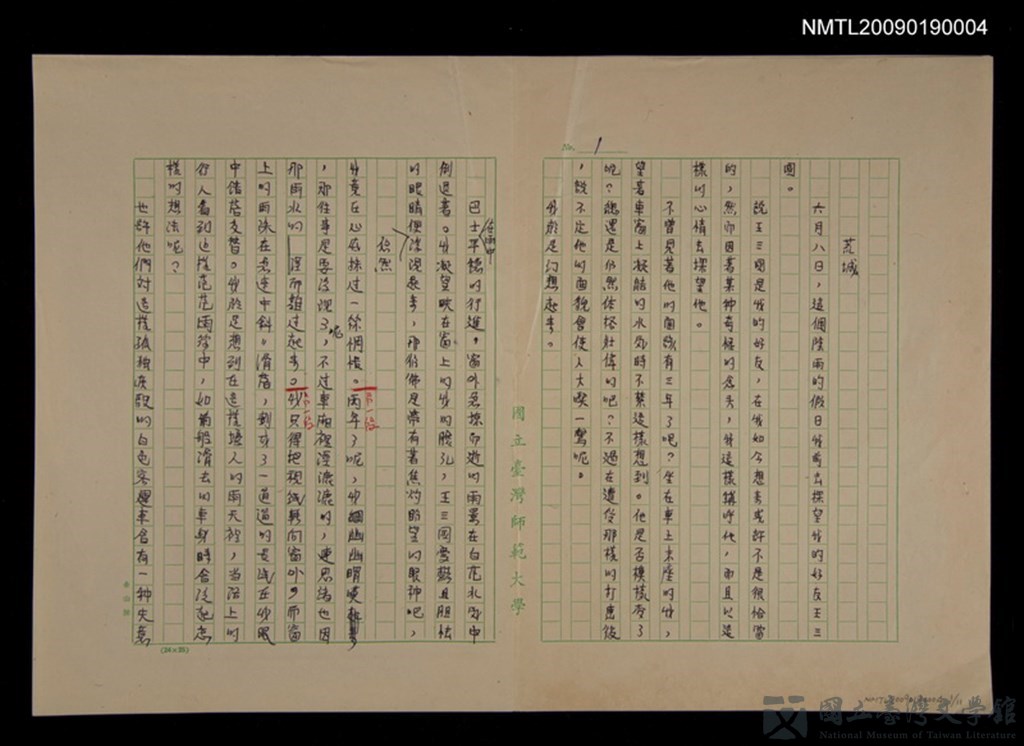 NMTL20090190004
No. 1
荒城
六月八日,這個陰雨的假日我前去探望我的好友王三
國。
說王三國是我的好友,在我如今想來或許不是很恰當
的,然而因著某種奇怪的念頭,我這樣稱呼他,而且以這
樣的心情去探望他。
不曾見著他的面該有三年了吧?坐在車上末座的我,
望著車窗上凝結的水氣時不禁這樣想到。他是否模樣變了
呢?還是仍然依舊壯偉的吧?不過在遭受那樣的打擊後
,說不定他的面貌會使人大吃一驚呢。
我於是幻想起來。
巴士平穩的行進,窗外急掠而逝的雨景在白茫水氣中
在雨中
倒退著。我凝望映在窗上的我的臉孔,王三國憂鬱且膽怯
的眼睛便浮現起來,那彷彿是帶有著焦灼盼望的眼神吧,
依然
我竟在心底抹過一絲惆悵。兩年了呢,我幽幽喟嘆
第一段
,那往事是要淡視了呢,不过車廂裡溼漉漉的,連思緒也因
那雨水的溼而
過起來。我只得把視線轉向窗外,而窗
第一段
上的雨珠在急速中斜斜滑落,劃成了一道道的長線在我眼
中錯落交替。我於是想到在這樣擾人的雨天裡,當路上的
行人看到這樣茫茫雨霧中,如箭般滑去的車身時會泛起怎
樣的想法呢?
也許他們對這樣孤獨疾馳的白色客運車含有一種失意
國立臺灣師範大學
(24×25)
國立臺灣文學館
National Museum of Taiwan Literature